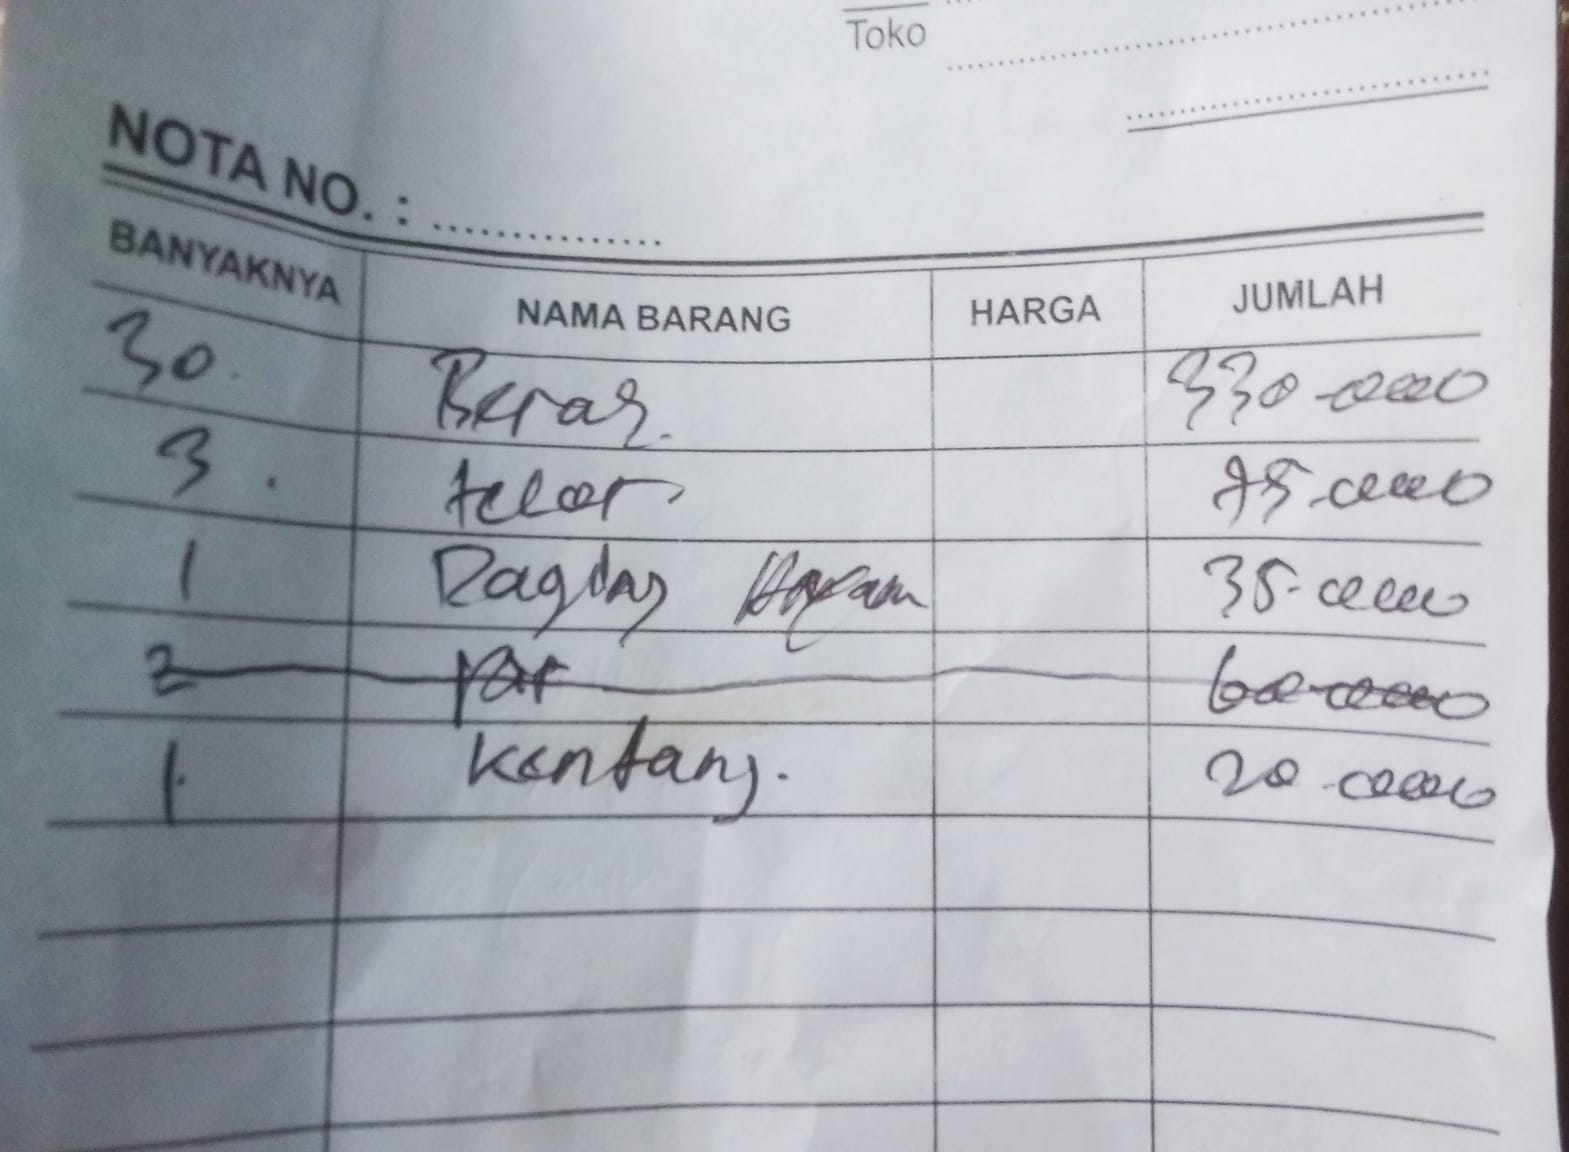 Toko
NOTA NO. : ...............
BANYAKNYA NAMA BARANG HARGA JUMLAH
30. Beras. 330.0000
3. telor 75.0000
1 Daging Hayam 35.0000
2 60.0000
1. Kentang. 20.0000